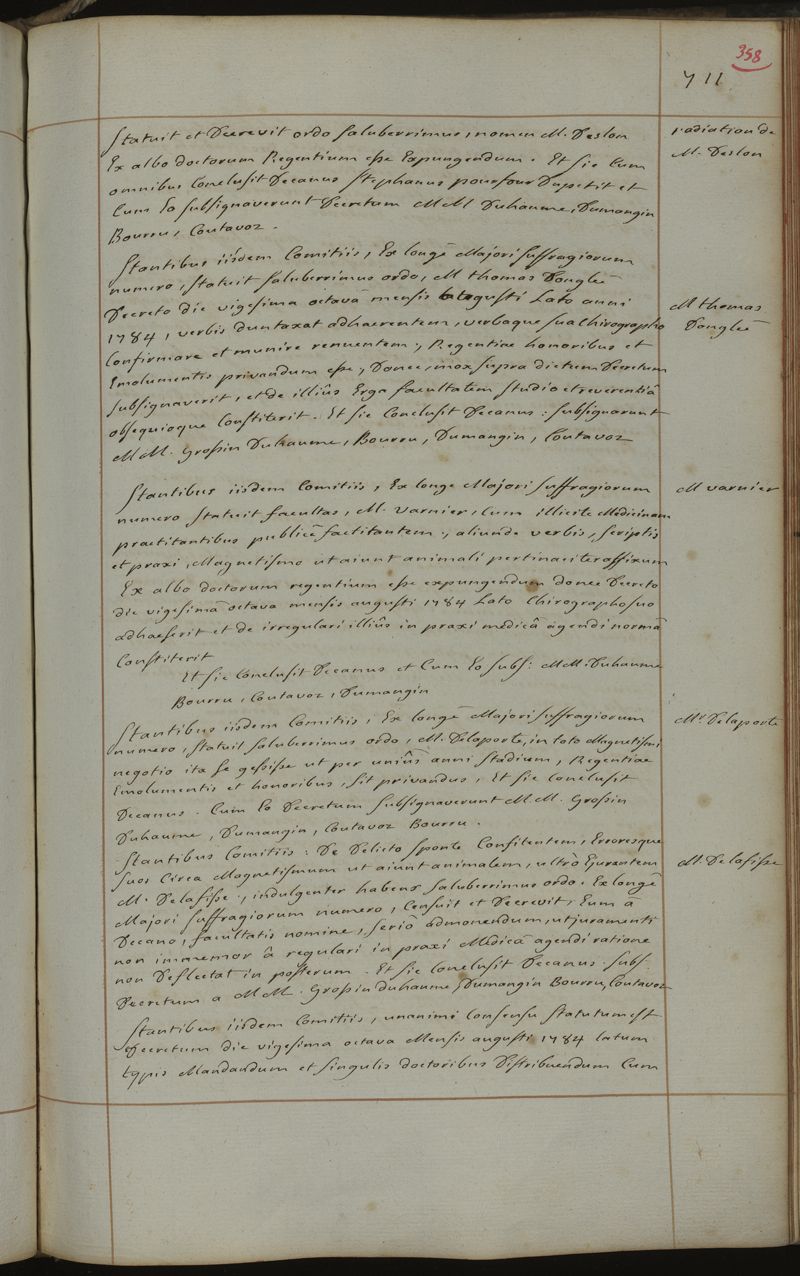 358
711
Statuit et Decrevit ordo saluberrimus, nomen M. Deslon
radiation de
M. Deslon
Ex albo doctorum Regentium esse Expungendum. Et sic cum
omnibus Conclusit Decanus Stephanus pourfour Dupetit et
Cum Eo subsignaverunt Decretum MM Duhaume, Dumangin
Bourru, Coutavoz.
Stantibus iisdem Comitiis, Ex longè Majori suffragiorum
numero, statuit saluberrimus ordo, M thomas Donglée
M thomas
Donglée
Decreto die vigesima octavâ mensis augusti Lato anni
1784, verbis duntaxat adhaerentem, verbaque sua Chirographo
Confirmare et munire renuentem, Regentiae honoribus et
Emolumentis privandum esse, Donec, mox supra dictum Decretum
subsignaverit, et de illiûs Erga facultatem studio et reverentiâ
obsequioque Constiterit. Et sic Conclusit Decanus: subsignarunt
MM. Grossin Duhaume, Bourru, Dumangin, Coutavoz
Stantibus iisdem Comitiis, Ex longe Majori suffragiorum
M varnier
numero statuit facultas, M. Varnier, Cum illicite Médicinam
practitantibus publicè factitantem, aliunde verbis, scriptis
et praxi, Magnetismo ut aiunt animali pertinaciter affixum
Ex albo doctorum regentium esse expungendum donec Decreto
die vigesimâ octava mensis augusti 1784 Lato Chirographo suo
adhaeserit et de irregulari illiûs in praxi médicâ agendi normâ
Constiterit
Et sic Conclusit Decanus et Cum Eo subs: MM. Duhaume
Bourru, Coutavoz, Dumangin
Stantibus iisdem Comitiis, Ex longè Majori suffragiorum
Mr Delaporte
numero, statuit saluberrimus ordo, M. Delaporte, in toto Magnetismi
negotio ita se gessisse ut per uniûs anni stadium, Regentiae
Emolumentis et honoribus, sit privandus, Et sic conclusit
Decanus. Cum Eo Decretum subsignaverunt MM. Grossin
Duhaume, Dumangin, Coutavoz Bourru.
Stantibus Comitiis: De Delicto sponte Confitentem, Erroresque
M. Delafisse
suos Circa Magnetismum ut aiunt animalem, ultrò Ejurantem
M. Delafisse, indulgenter habens saluberrimus ordo. Ex longè
Majori suffragiorum numero, Censuit et Decrevit, Eum à
Decano, facultatis nomine, seriò admonendum, ut juramenti
non immemor â regulari in praxi Médicâ agendi ratione
non Deflectat in posterum. Et sic Conclusit Decanus. subs.
Decretum a MM. Grossin Duhaume, Dumangin Bourru, Coutavoz
Stantibus iisdem Comitiis, unanimi Consensu statutum est
Decretum die vigesima octava Mensis augusti 1784 latum
typis Mandandum et singulis doctoribus Distribuendum Cum